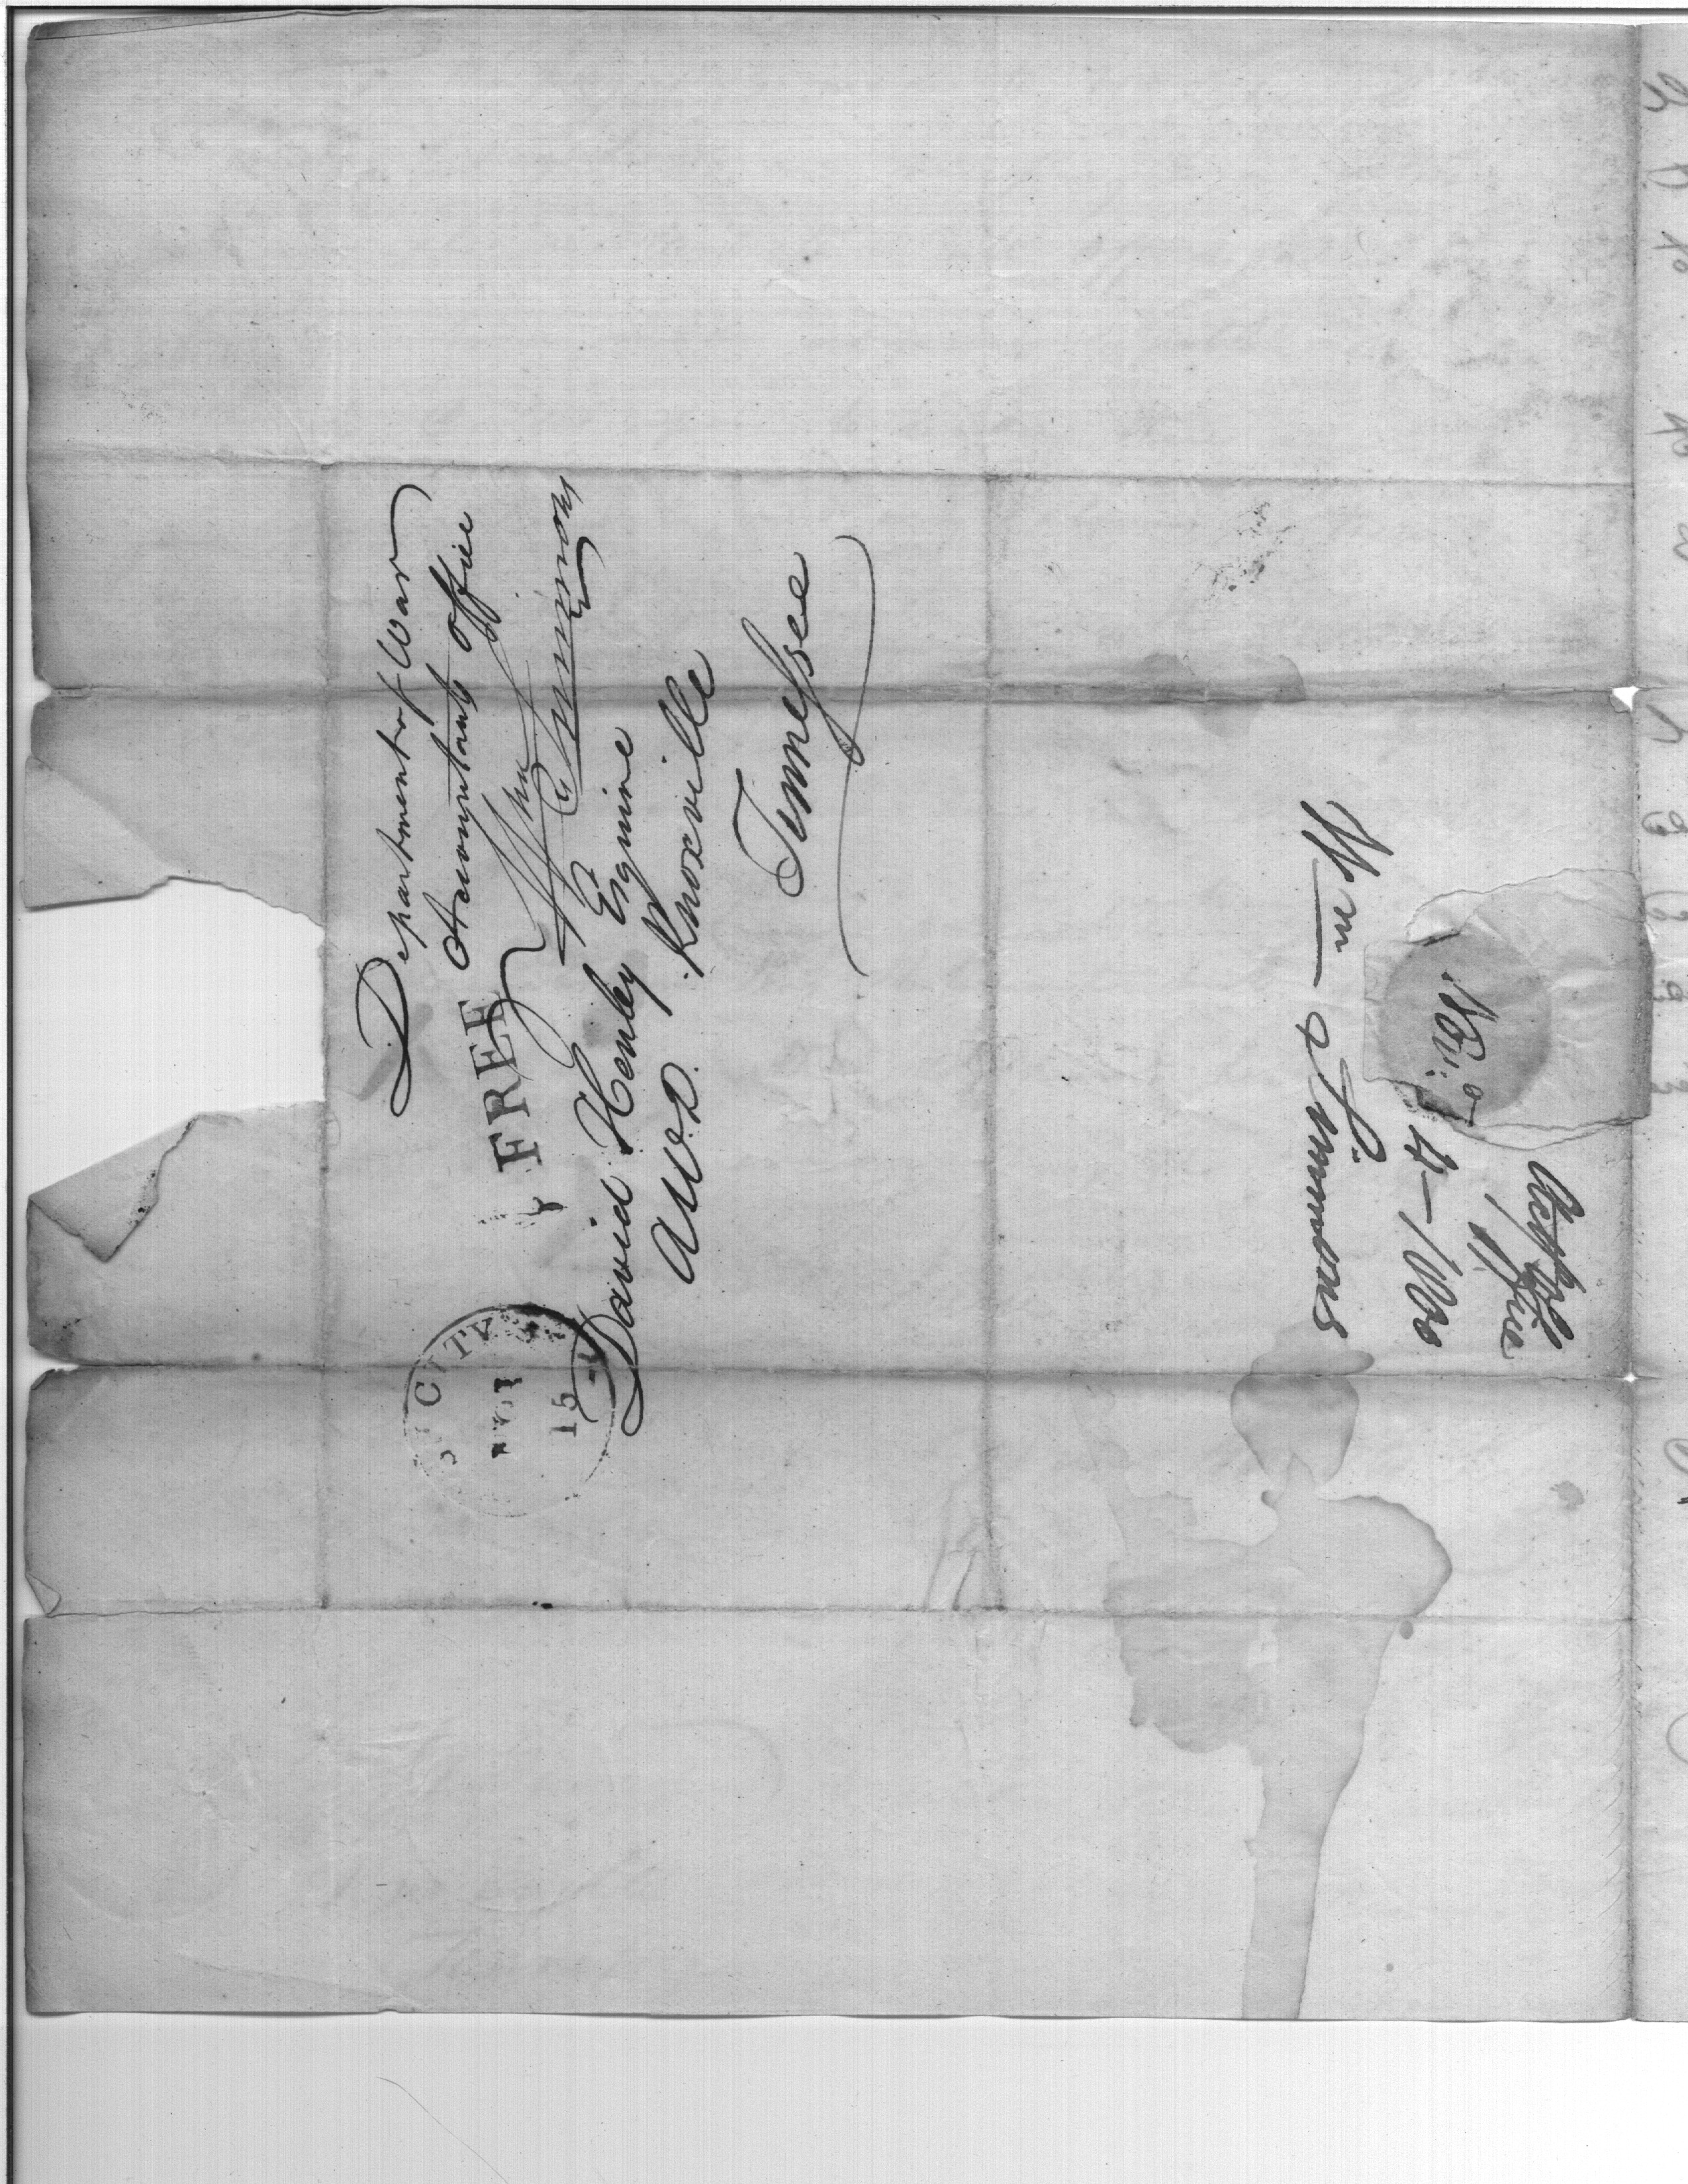 Department of War
Accountants Office
FREE
Wm Simmons
CITY
15
David Henley Esquire
A.W.D. Knoxville
Tennessee
Wm Simmons
Nov:
Office